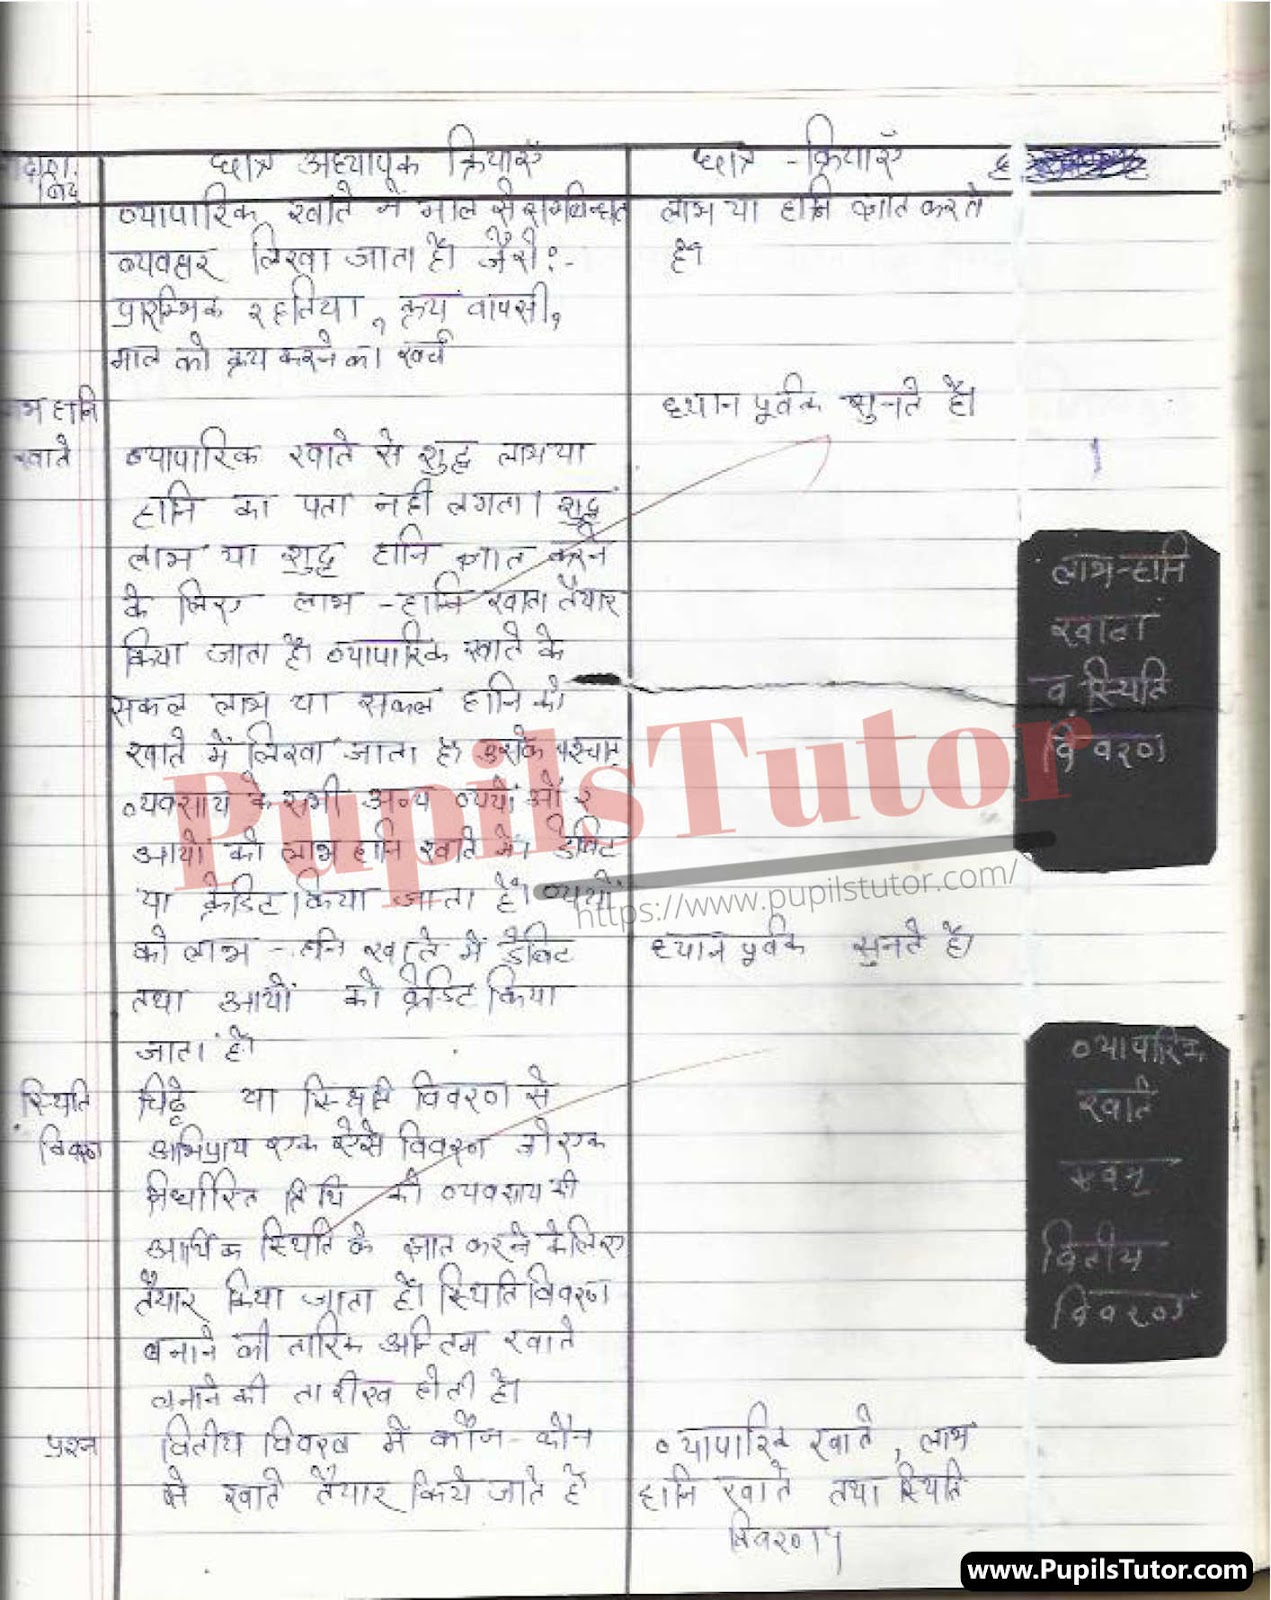 छात्र अध्यापक क्रियाएँ
छात्र - क्रियाएँ
व्यापारिक खाते में माल से सम्बन्धित
व्यवहार लिखा जाता है। जैसे:-
प्रारम्भिक रहतिया, क्रय वापसी,
माल को क्रय करने का खर्च
लाभ या हानि ज्ञात करते
है।
ध्यान पूर्वक सुनते है।
हानि
खाते
व्यापारिक खाते से शुद्ध लाभ या
हानि का पता नही लगता। शुद्ध
लाभ या शुद्ध हानि ज्ञात करने
के लिए लाभ - हानि खाता तैयार
किया जाता है। व्यापारिक खाते के
सकल लाभ या सकल हानि को
खाते में लिखा जाता है। उसके पश्चात
व्यवसाय के सभी अन्य व्ययों और
आयों को लाभ हानि खाते में डेबिट
या क्रेडिट किया जाता है। व्ययों
को लाभ - हानि खाते में डेबिट
तथा आयों को क्रेडिट किया
जाता है।
ध्यान पूर्वक सुनते है।
स्थिति
विवरण
चिट्ठे या स्थिति विवरण से
अभिप्राय एक ऐसे विवरण जो एक
निर्धारित तिथि को व्यवसाय की
आर्थिक स्थिति के ज्ञात करने के लिए
तैयार किया जाता है। स्थिति विवरण
बनाने की तारिक अन्तिम खाते
बनाने की तारीख होती है।
प्रश्न
वितीय विवरण में कौन - कौन
से खाते तैयार किये जाते है
व्यापारिक खाते, लाभ
हानि खाते तथा स्थिति
विवरण।
लाभ-हानि
खाता
व स्थिति
विवरण
व्यापारिक
खाते
एवम्
वितीय
विवरण
PupilsTutor
https://www.pupilstutor.com/
www.PupilsTutor.com